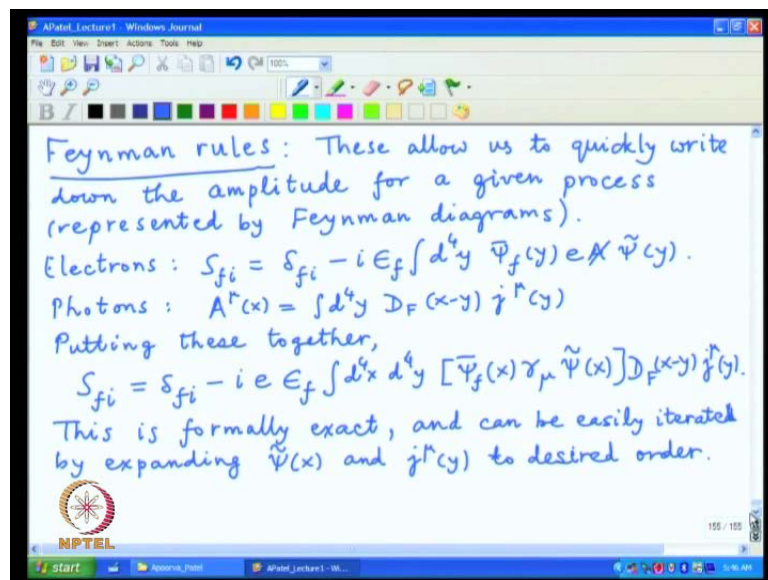 APatel_Lecture1 - Windows Journal
File Edit View Insert Actions Tools Help
100%
B I
Feynman rules: These allow us to quickly write
down the amplitude for a given process
(represented by Feynman diagrams).
Electrons: S_fi = δ_fi - i ϵ_f ∫d⁴y ψ̄_f(y) e A̸ ψ̃(y).
Photons: A^μ(x) = ∫d⁴y D_F(x-y) j^μ(y)
Putting these together,
S_fi = δ_fi - i e ϵ_f ∫d⁴x d⁴y [ψ̄_f(x) γ_μ ψ̃(x)] D_F(x-y) j^μ(y).
This is formally exact, and can be easily iterated
by expanding ψ̃(x) and j^μ(y) to desired order.
NPTEL
155 / 155
start
Apoorva_Patel
APatel_Lecture1 - Wi...
5:46 AM